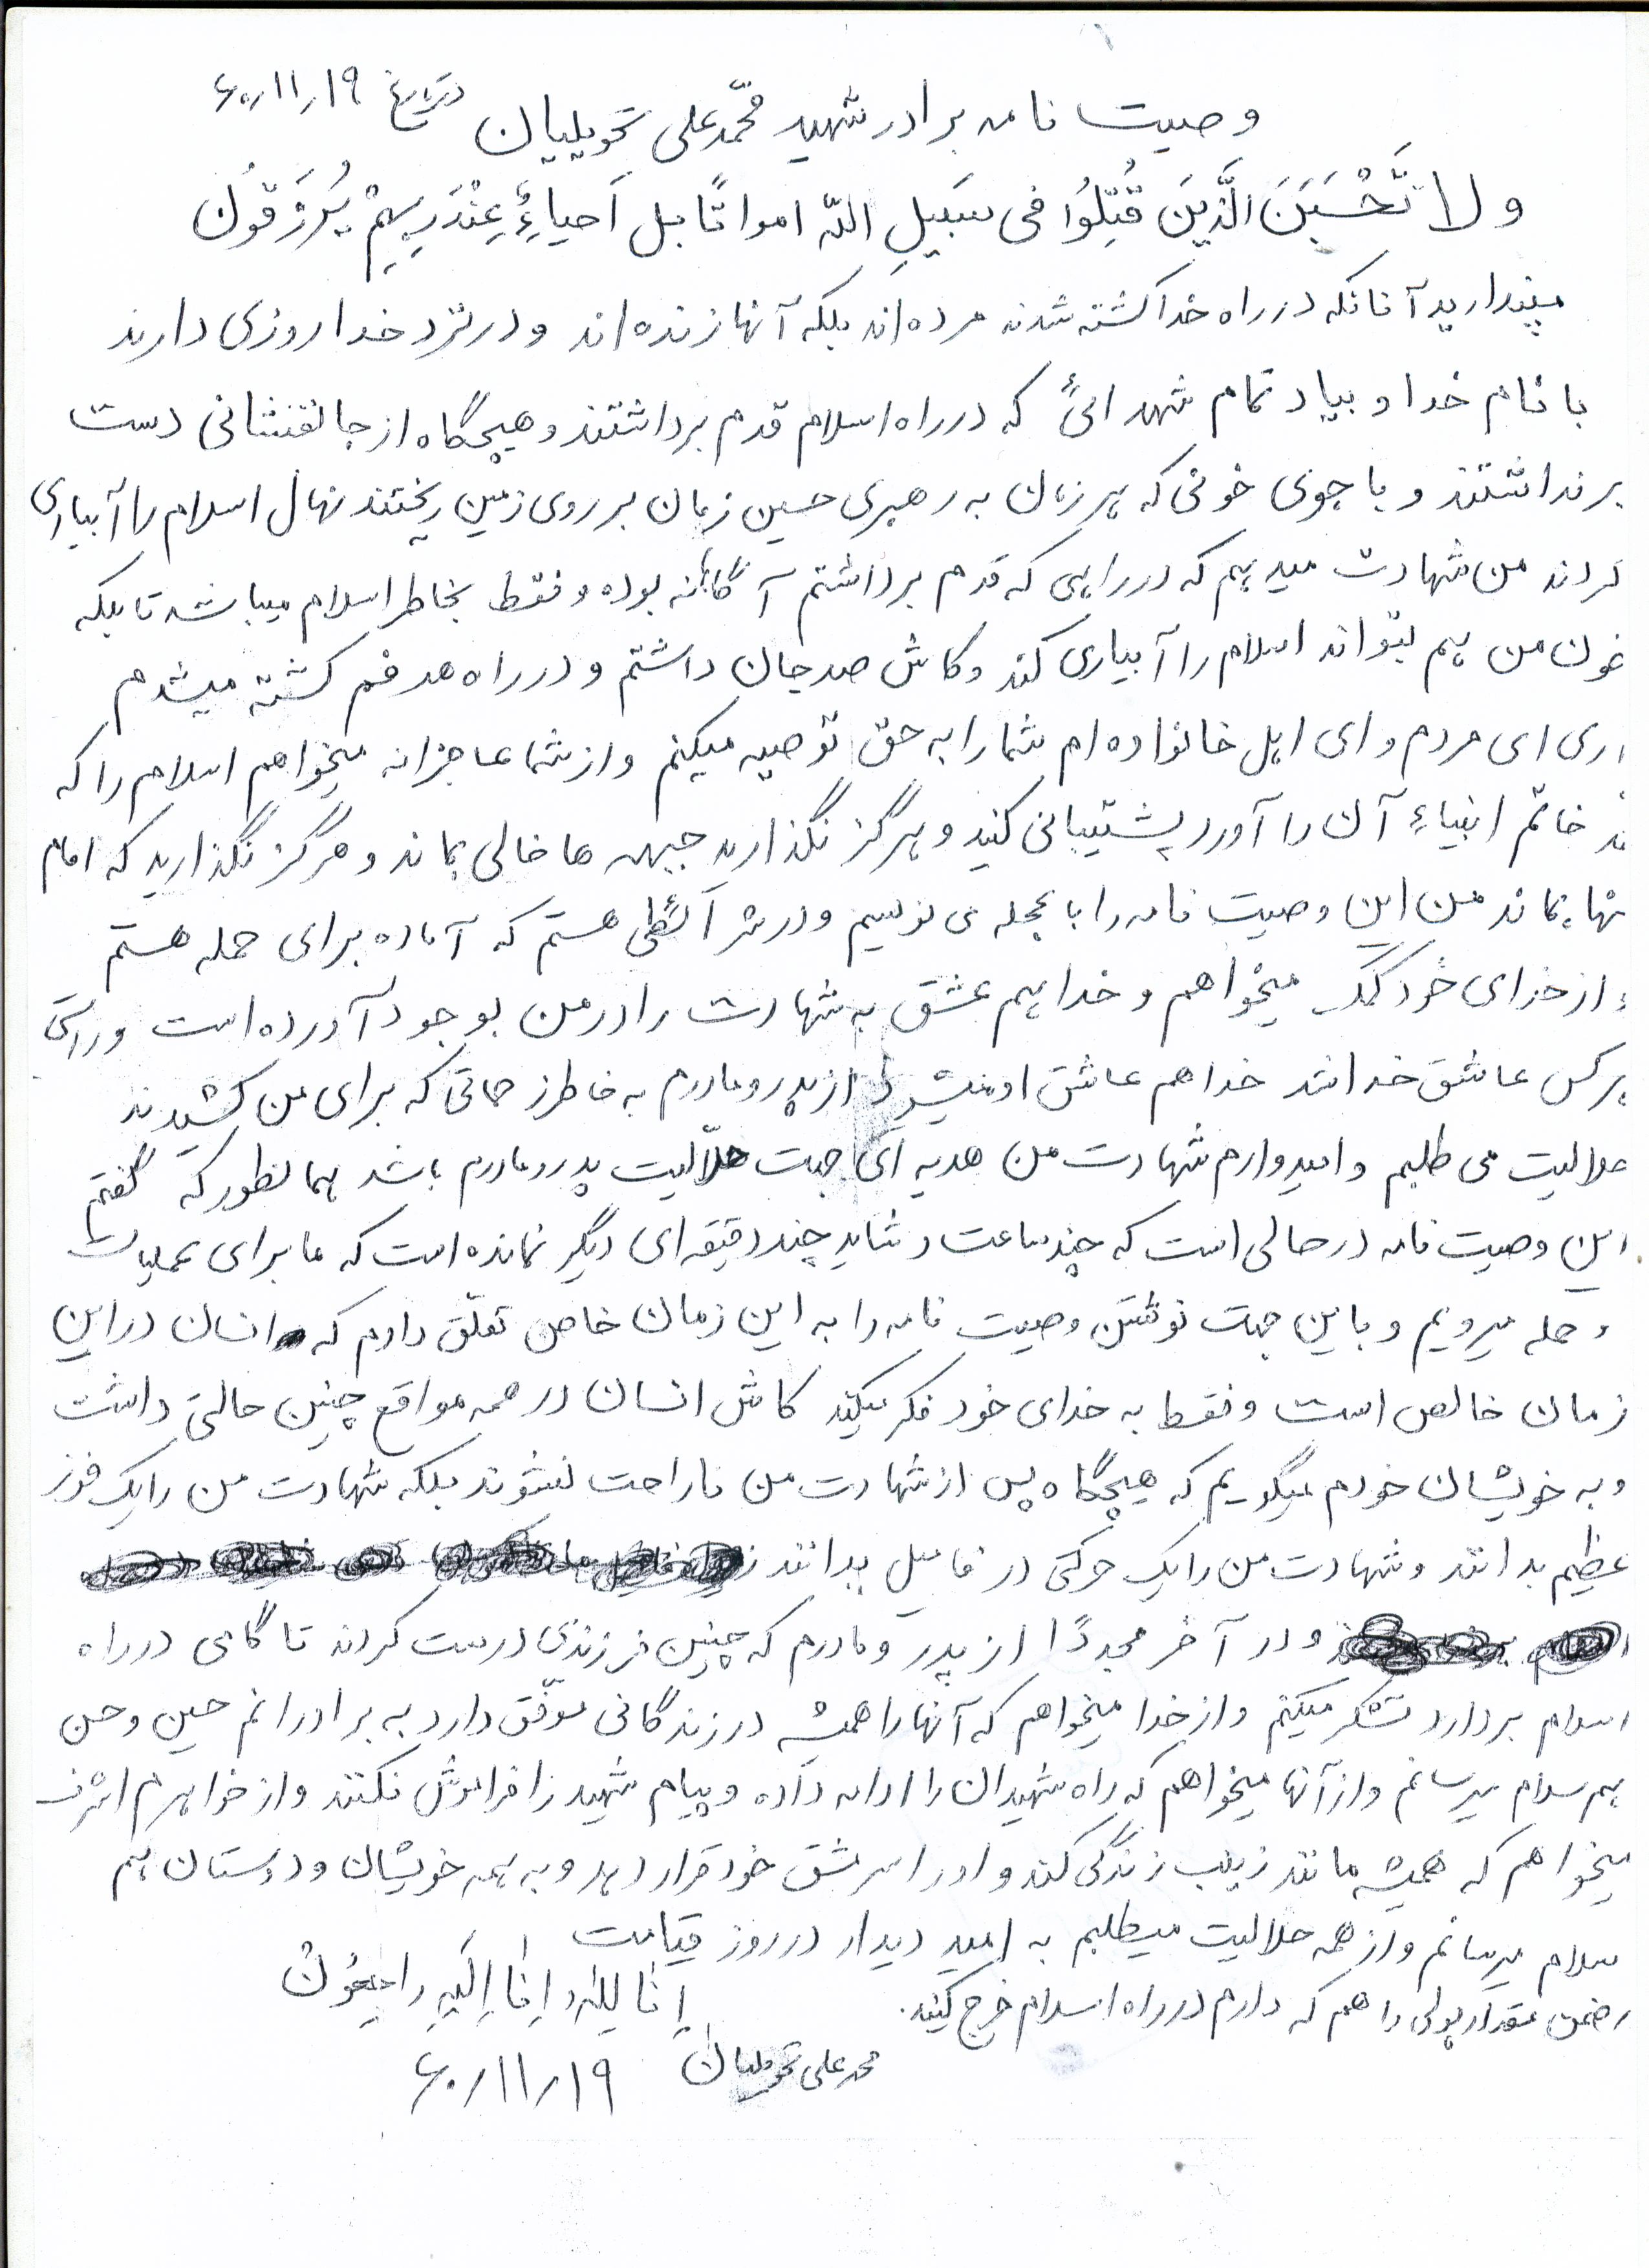 وصیت نامه برادر شهید محمّدعلی تحویلیان بتاریخ ۶۰٫۱۱٫۱۹
و لا تَحْسَبَنَ الَّذینَ قُتِلُوا فی سَبیلِ اللّه امواتًا بل اَحیاءٌ عِنْدَ رَبِهِمْ یُرزَقوُن
مپندارید آنانکه در راه خدا کشته شدند مرده اند بلکه آنها زنده اند و در نزد خدا روزی دارند
با نام خدا و بیاد تمام شهدائی که در راه اسلام قدم برداشتند و هیچگاه از جانفشانی دست
برنداشتند و با جوی خونی که هر زمان به رهبری حسین زمان بر روی زمین ریختند نهال اسلام را آبیاری
کردند من شهادت میدهم که در راهی که قدم برداشتم آگاهانه بوده و فقط بخاطر اسلام میباشد تا بلکه
خون من هم بتواند اسلام را آبیاری کند و کاش صد جان داشتم و در راه هدفم کشته میشدم
اری ای مردم و ای اهل خانواده ام شما را به حق توصیه میکنم و از شما عاجزانه میخواهم اسلام را که
خاتم انبیاءِ آن را آورد پشتیبانی کنید و هرگز نگذارید جبهه ها خالی بماند و هرگز نگذارید که امام
تنها بماند من این وصیت نامه را با عجله می نویسیم و در شرائطی هستم که آماده برای حمله هستم
و از خدای خود کمک میخواهم و خدا هم عشق به شهادت را در من بوجود آورده است
هرکس عاشق خدا شد خدا هم عاشق او میشود از پدر و مادرم به خاطر زحماتی که برای من کشیدند
حلالیت می طلبم و امیدوارم شهادت من هدیه ای جهت حلّالیت پدر و مادرم باشد همانطور که گفتم
این وصیت نامه در حالی است که چند ساعت و شاید چند دقیقه ای دیگر نمانده است که ما برای عملیات
و حمله میرویم و باین جهت نوشتن وصیت نامه را به این زمان خاص تعلّق دادم که انسان در این
زمان خالص است و فقط به خدای خود فکر میکند کاش انسان در همه مواقع چنین حالتی داشت
و به خویشان خودم میگویم که هیچگاه پس از شهادت من ناراحت نشوند بلکه شهادت من را یک فوز
عظیم بدانند و شهادت من را یک حرکتی در فامیل بدانند
و در آخر مجددًا از پدر و مادرم که چنین فرزندی درست کردند تا گامی در راه
اسلام بردارد تشکر میکنم و از خدا میخواهم که آنها را همیشه در زندگانی موّفق دارد به برادرانم حسین و حسن
هم سلام میرسانم و از آنها میخواهم که راه شهیدان را ادامه داده و پیام شهید را فراموش نکنند و از خواهرم اشرف
میخواهم که همیشه مانند زینب زندگی کند و او را سرمشق خود قرار دهد و به همه خویشان و دوستان هم
سلام میرسانم و از همه حلالیت میطلبم به امید دیدار در روز قیامت
اِنا لِلّه و اِنا اِلَیهِ راجِعوُن
ضمن مقدار پولی را هم که دارم در راه اسلام خرج کنید.
محمد علی تحویلیان ۶۰٫۱۱٫۱۹